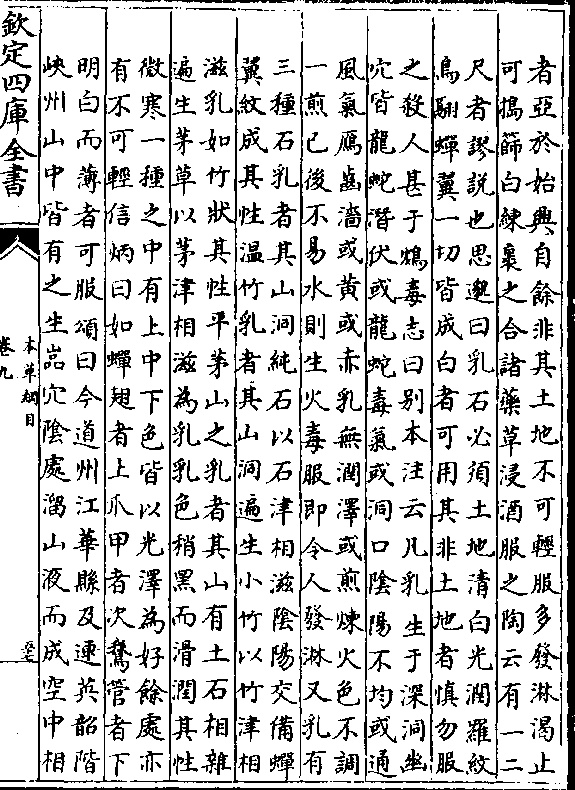 者亞於始興自餘非其土地不可輕服多發淋渴止
可搗篩白練裹之合諸藥草浸酒服之陶云有一二
尺者謬說也思邈曰乳石必須土地清白光潤羅紋
鳥翮蟬翼一切皆成白者可用其非土地者慎勿服
之殺人甚于鴆毒志曰别本注云凡乳生于深洞幽
穴皆龍蛇潛伏或龍蛇毒氣或洞口陰陽不均或通
風氣鴈齒澁或黄或赤乳無潤澤或煎煉火色不調
一煎已後不易水則生火毒服即令人發淋又乳有
三種石乳者其山洞純石以石津相滋陰陽交備蟬
翼紋成其性温竹乳者其山洞遍生小竹以竹津相
滋乳如竹狀其性平茅山之乳者其山有土石相雜
遍生茅草以茅津相滋為乳乳色稍黑而滑潤其性
微寒一種之中有上中下色皆以光澤為好餘處亦
有不可輕信炳曰如蟬翅者上爪甲者次鵞管者下
明白而薄者可服頌曰今道州江華縣及連英韶階
峽州山中皆有之生嵓穴陰處溜山液而成空中相
欽定四庫全書
本草綱目
卷九